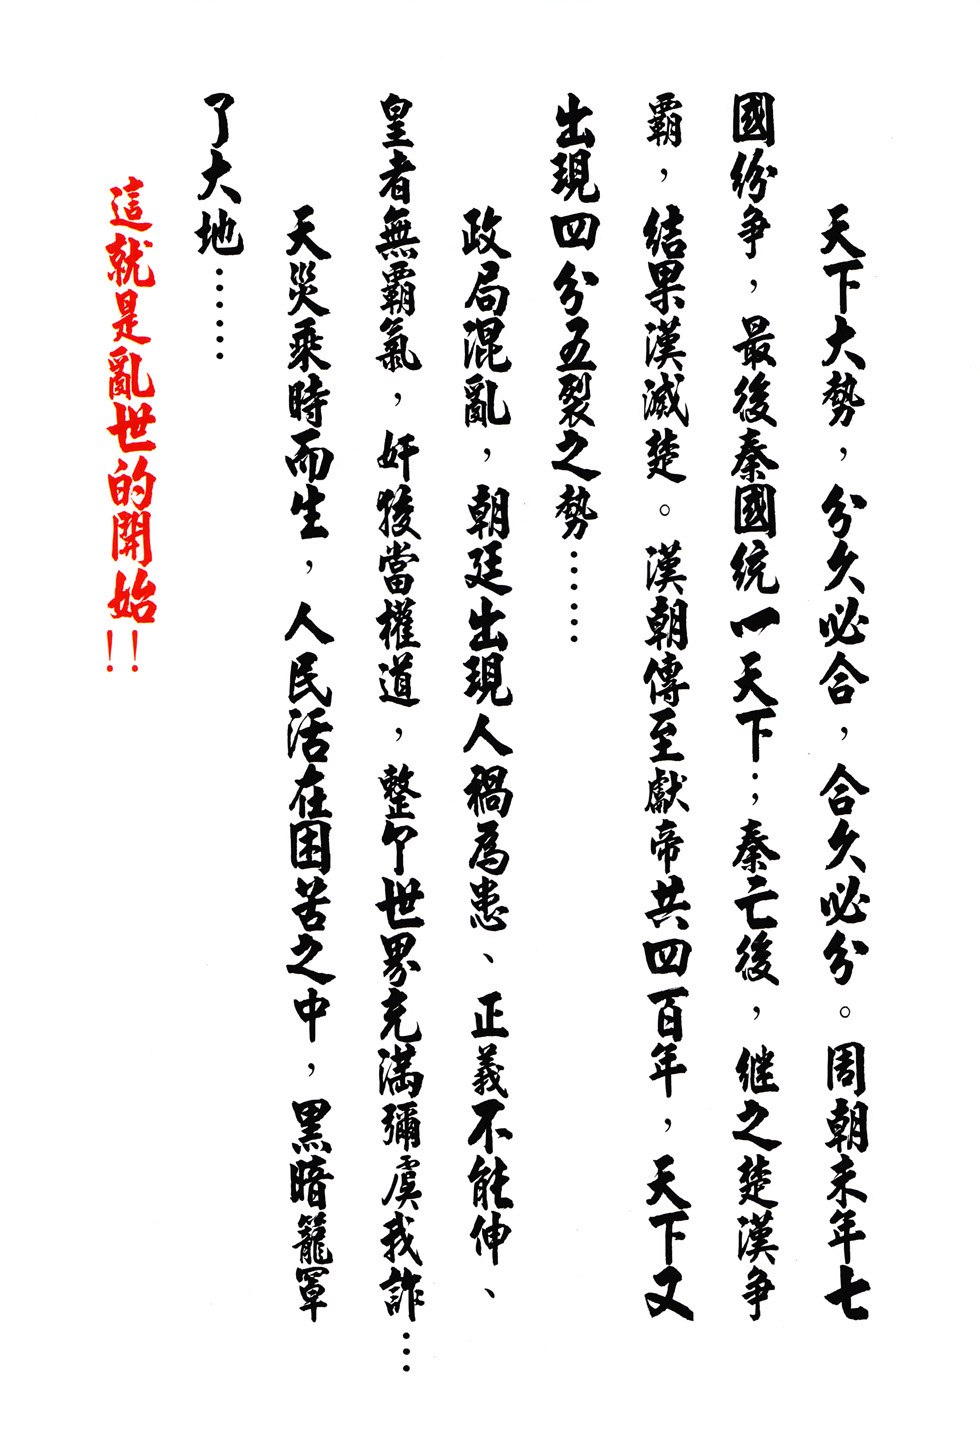 天下大勢，分久必合，合久必分。周朝末年七
國紛爭，最後秦國統一天下；秦亡後，繼之楚漢爭
霸，結果漢滅楚。漢朝傳至獻帝共四百年，天下又
出現四分五裂之勢……
政局混亂，朝廷出現人禍為患、正義不能伸、
皇者無霸氣，奸狡當權道，整個世界充滿彌虞我詐…
天災乘時而生，人民活在困苦之中，黑暗籠罩
了大地……
這就是亂世的開始!!